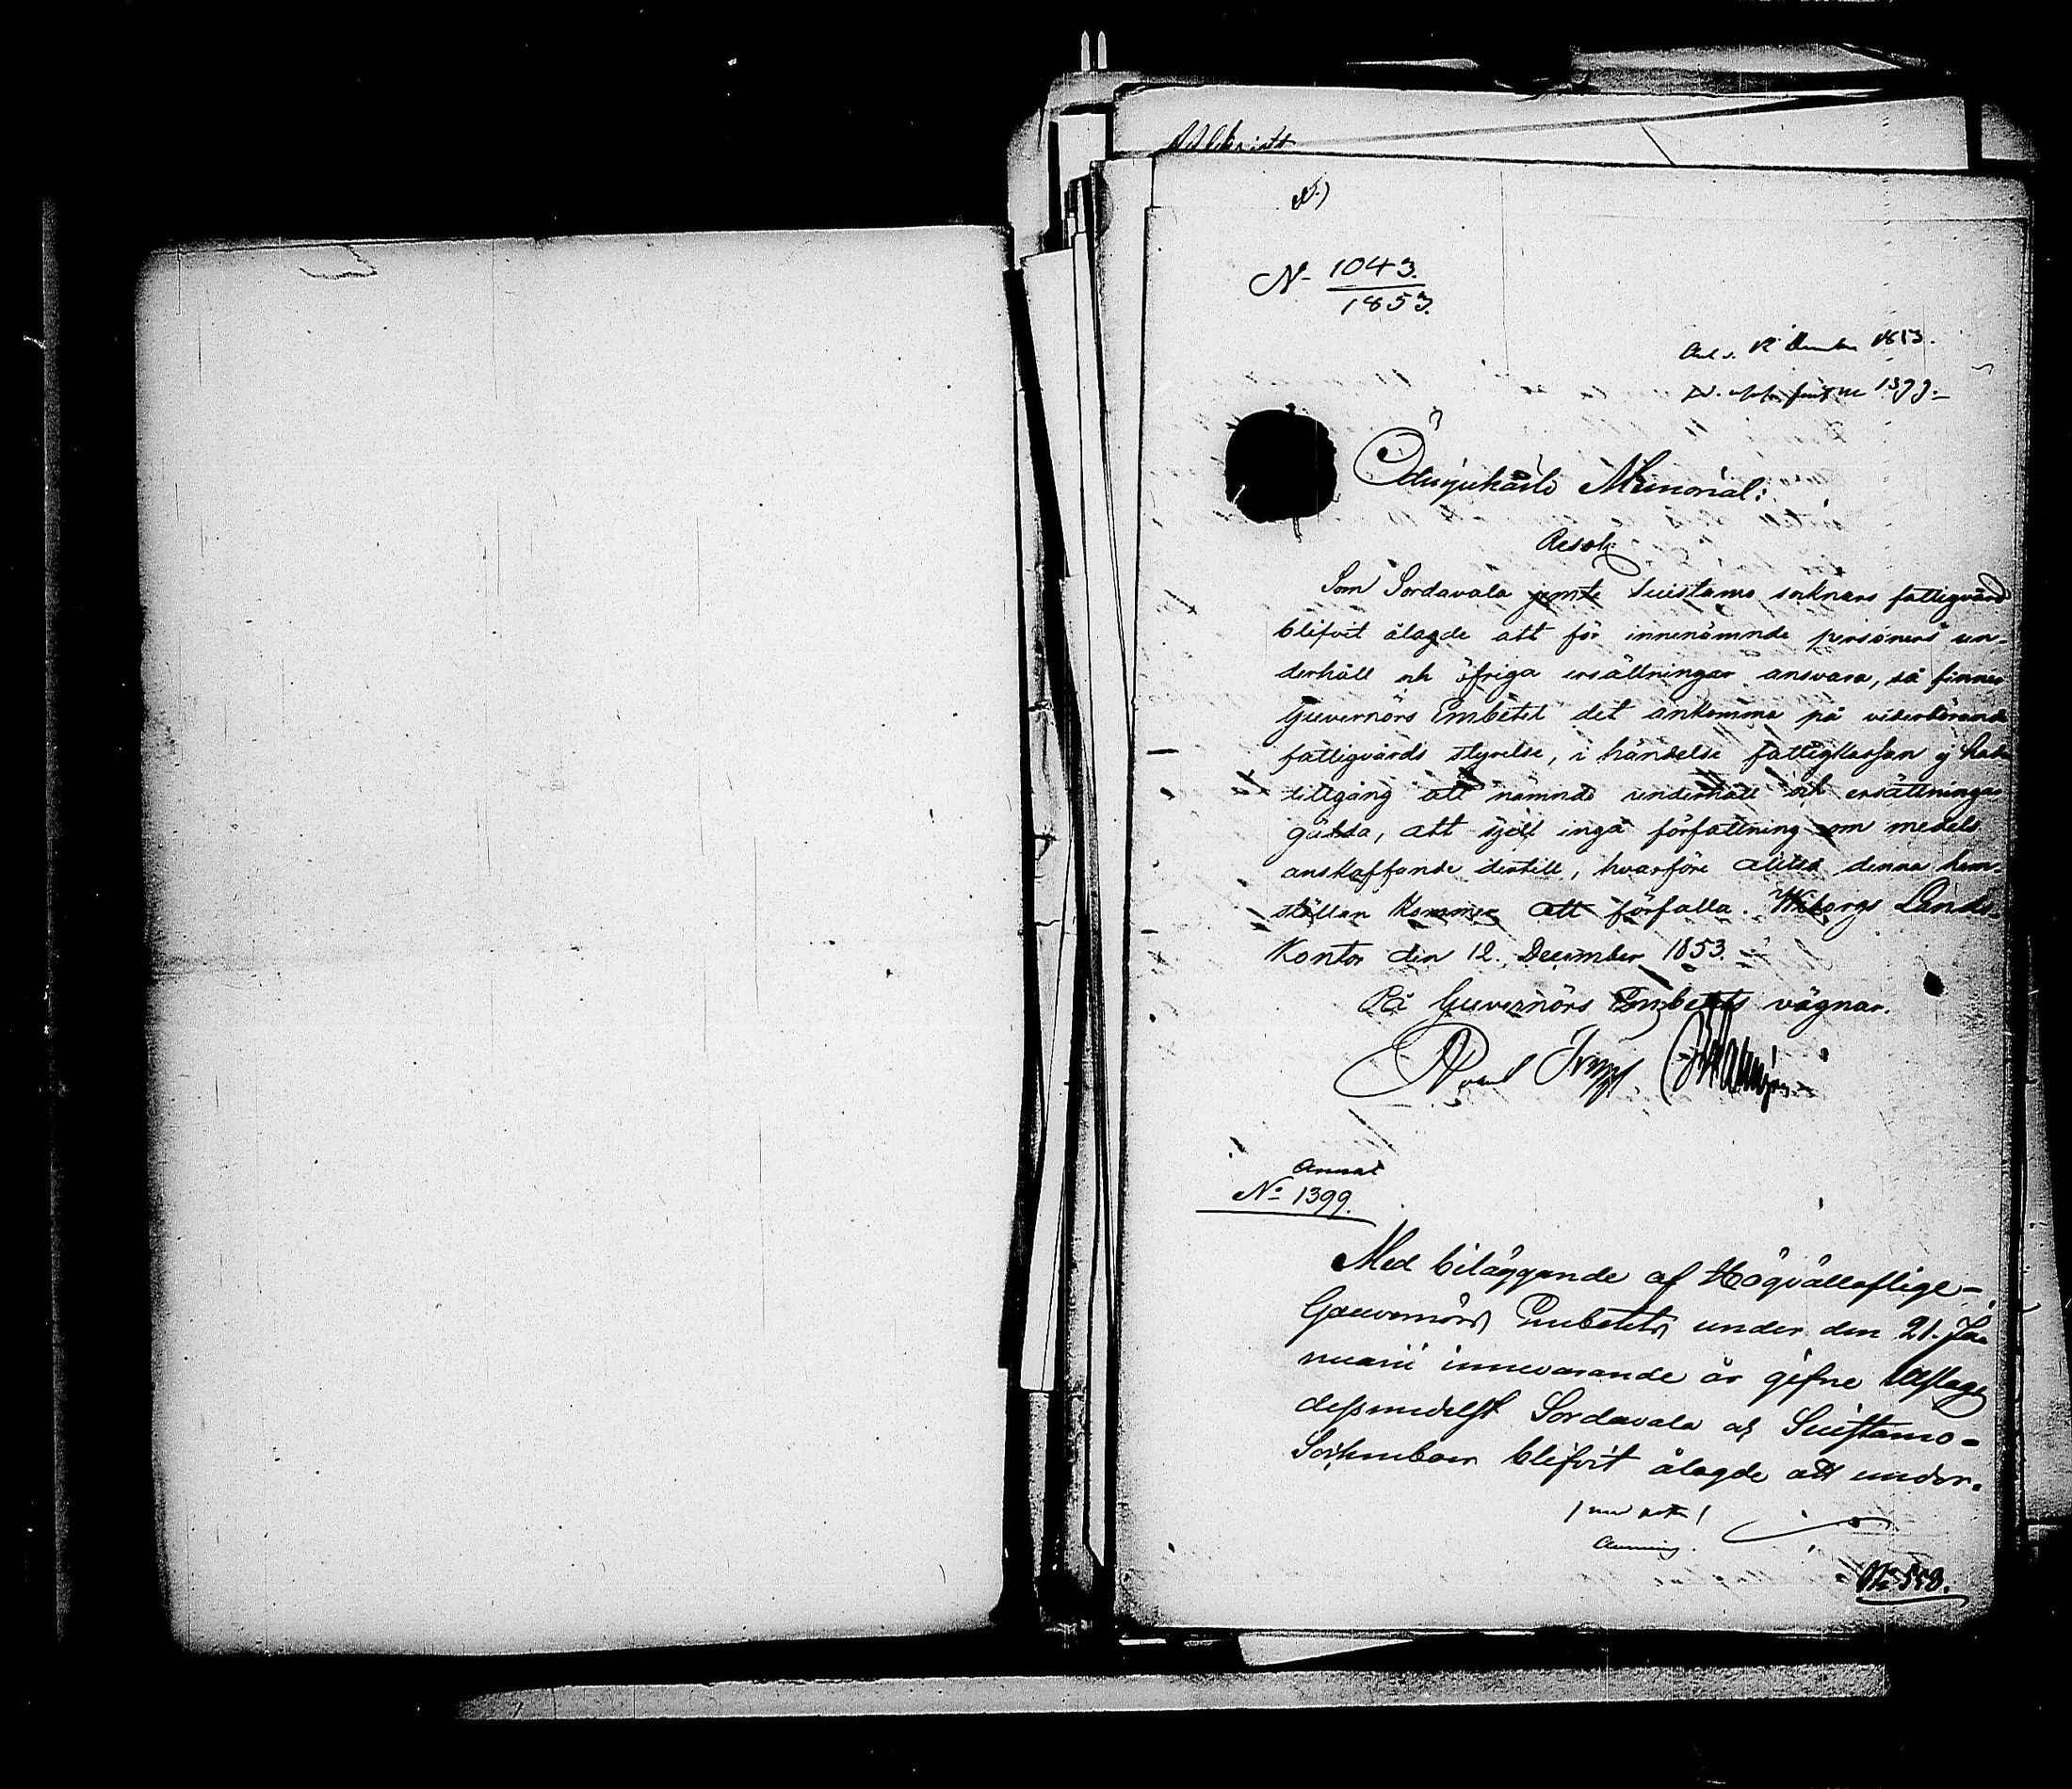 N- 1043.
1853.
12 1853.
1399.
Ödmjukaste Memorial:
Resol:
Som Sordavala jemte Suistamo soknars fattigvård
blifvit ålagde att för innenämnde personers un-
derhåll och öfriga ersättningar ansvara, så finner
Guvernörs Embetet det ankomma på vederbörande
fattigvårds styrelse, i händelse fattigkassan ej har
tillgång att nämnde underhåll och ersättningar
gälda, att sjelf ingå författning om medels
anskaffande dertill, hvarföre alltså denna hem-
ställan kommer att förfalla. Wiborgs Lands-
Kontor den 12. December 1853.
På Guvernörs Embetets vägnar.
Annat
No 1399.
Med biläggande af Högvälloflige-
Gouvernörs Embetets under den 21. Ja-
nuarii innevarande år gifne Utslag
dessmedelst Sordavala och Suistamo-
Socknboer blifvit ålagde att under-
No 558.